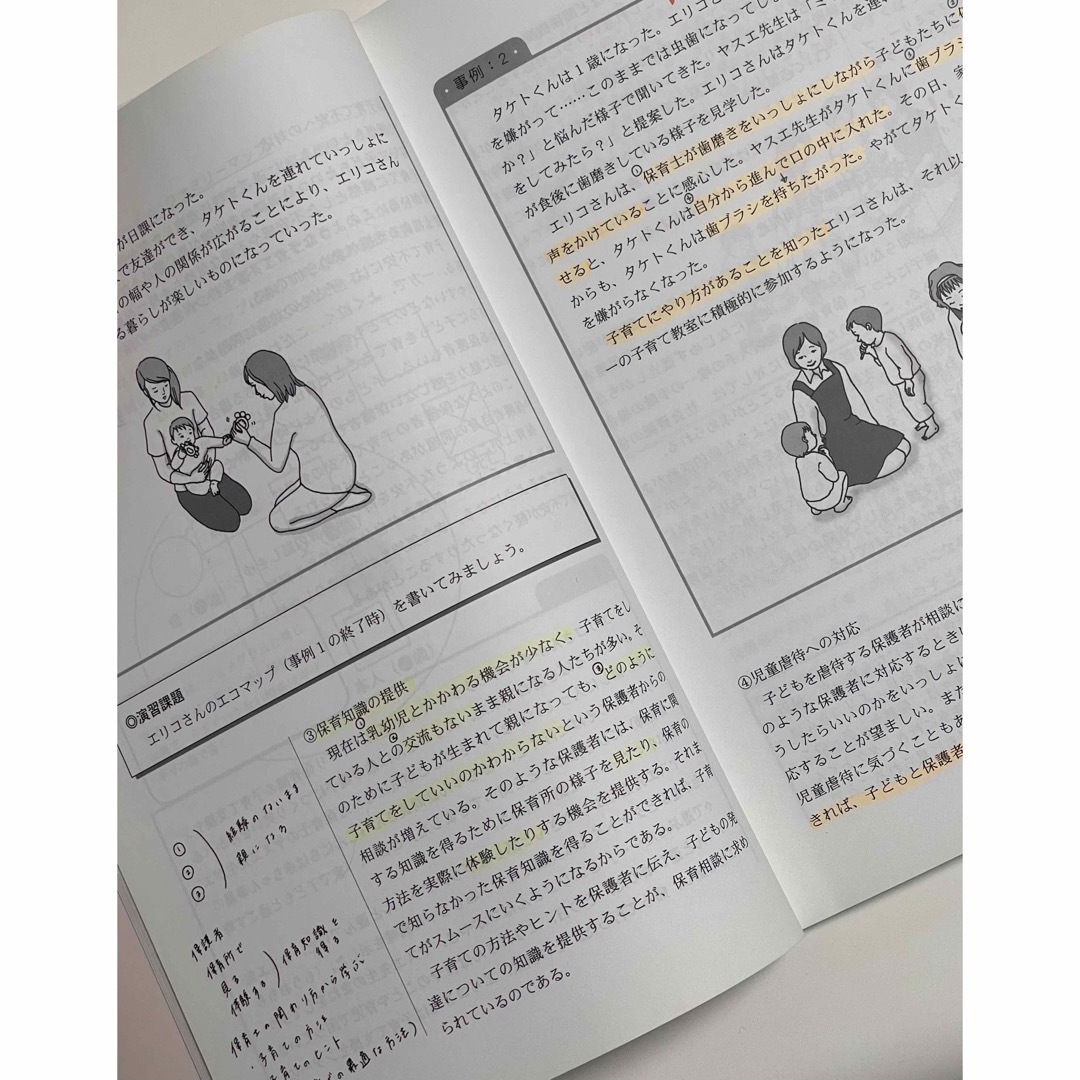 が日課になった。
で友達ができ、タケトくんを連れていっしょに
の幅や人の関係が広がることにより、エリコさん
る暮らしが楽しいものになっていった。
◎演習課題
エリコさんのエコマップ（事例1の終了時）を書いてみましょう。
③保育知識の提供
現在は乳幼児とかかわる機会が少なく、子育てをし
ている人との交流もないまま親になる人たちが多い。そ
のために子どもが生まれて親になっても、どのように
子育てをしていいのかわからないという保護者からの
相談が増えている。そのような保護者には、保育に関
する知識を得るために保育所の様子を見たり、保育の
方法を実際に体験したりする機会を提供する。それま
で知らなかった保育知識を得ることができれば、子育
てがスムースにいくようになるからである。
子育ての方法やヒントを保護者に伝え、子どもの発
達についての知識を提供することが、保育相談に求め
られているのである。
①
②
③
経験のないまま
親になる
保護者
保育所で
見る
体験する
保育知識を
得る
保育士の関わり方から学ぶ
・子育ての方法
子育てのヒント
の最適な方法）
事例：2
タケトくんは1歳になった。エリコさ
を嫌がって……このままでは虫歯になってし
か？」と悩んだ様子で聞いてきた。ヤスエ先生は「ミ
をしてみたら？」と提案した。エリコさんはタケトくんを連れ
が食後に歯磨きしている様子を見学した。
エリコさんは、保育士が歯磨きをいっしょにしながら子どもたちに
声をかけていることに感心した。ヤスエ先生がタケトくんに歯ブラシ
せると、タケトくんは自分から進んで口の中に入れた。その日、家
からも、タケトくんは歯ブラシを持ちたがった。やがてタケトく
を嫌がらなくなった。
子育てにやり方があることを知ったエリコさんは、それ以
ーの子育て教室に積極的に参加するようになった。
④児童虐待への対応
子どもを虐待する保護者が相談に
のような保護者に対応するときに
うしたらいいのかをいっしょに
応することが望ましい。また
児童虐待に気づくこともあ
きれば、子どもと保護者